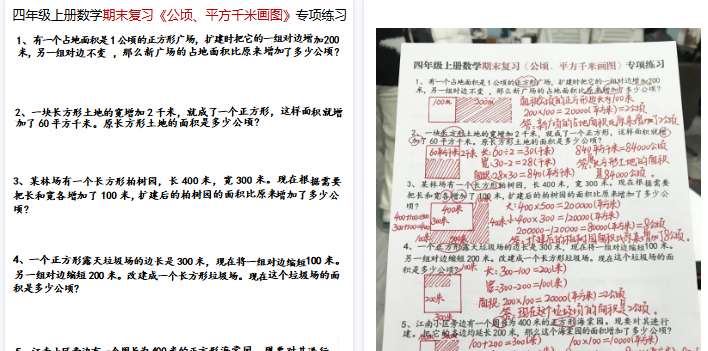 四年级上册数学期末复习《公顷、平方千米画图》专项练习
1、有一个占地面积是1公顷的正方形广场，扩建时把它的一组对边增加200
米，另一组对边不变 ，那么新广场的占地面积比原来增加了多少公顷？
2、一块长方形土地的宽增加2千米，就成了一个正方形，这样面积就增
加了60平方千米。原长方形土地的面积是多少公顷？
3、某林场有一个长方形柏树园，长400米，宽300米。现在根据需要
把长和宽各增加了100米，扩建后的柏树园的面积比原来增加了多少公
顷？
4、一个正方形露天垃圾场的边长是300米，现在将一组对边缩短100米。
另一组对边缩短200米。改建成一个长方形垃圾场。现在这个垃圾场的面
积是多少公顷？
四年级上册数学期末复习《公顷、平方千米画图》专项练习
1、有一个占地面积是1公顷的正方形广场，扩建时把它的一组对边增加200
米，另一组对边不变，那么新广场的占地面积比原来增加了多少公顷？
100米 200米 面积1公顷的正方形边长为100米
200×100=20000(平方米)=2公顷
2、一块长方形土地的宽增加2千米，就成了一个正方形，这样面积就增
加了60平方千米。原长方形土地的面积是多少公顷？
长:60÷2=30(千米) 840平方千米=84000公顷
宽:30-2=28(千米) 答:长方形土地的面积
面积:28×30=840(平方千米) 是84000公顷。
3、某林场有一个长方形柏树园，长400米，宽300米。现在根据需要
把长和宽各增加了100米，扩建后的柏树园的面积比原来增加了多少公
顷？
大:400×500=200000(平方米)
400米 小:400×300=120000(平方米)
300米 200000-120000=80000(平方米)=8公顷
4、一个正方形露天垃圾场的边长是300米，现在将一组对边缩短100米。
另一组对边缩短200米。改建成一个长方形垃圾场。现在这个垃圾场的面
积是多少公顷？
长:300-100=200(米)
宽:300-200=100(米)
200米 面积:200×100=20000(平方米)=2公顷
300米 答:现在这个垃圾场的面积是2公顷。
5、江南小区旁边有一个周长为400米的正方形海棠园。现要对其进行
建。把它的各边均延长200米。那么这个海棠园的面积增加了多少公顷？
100+200=300(米) 100×100=10000(平方米)